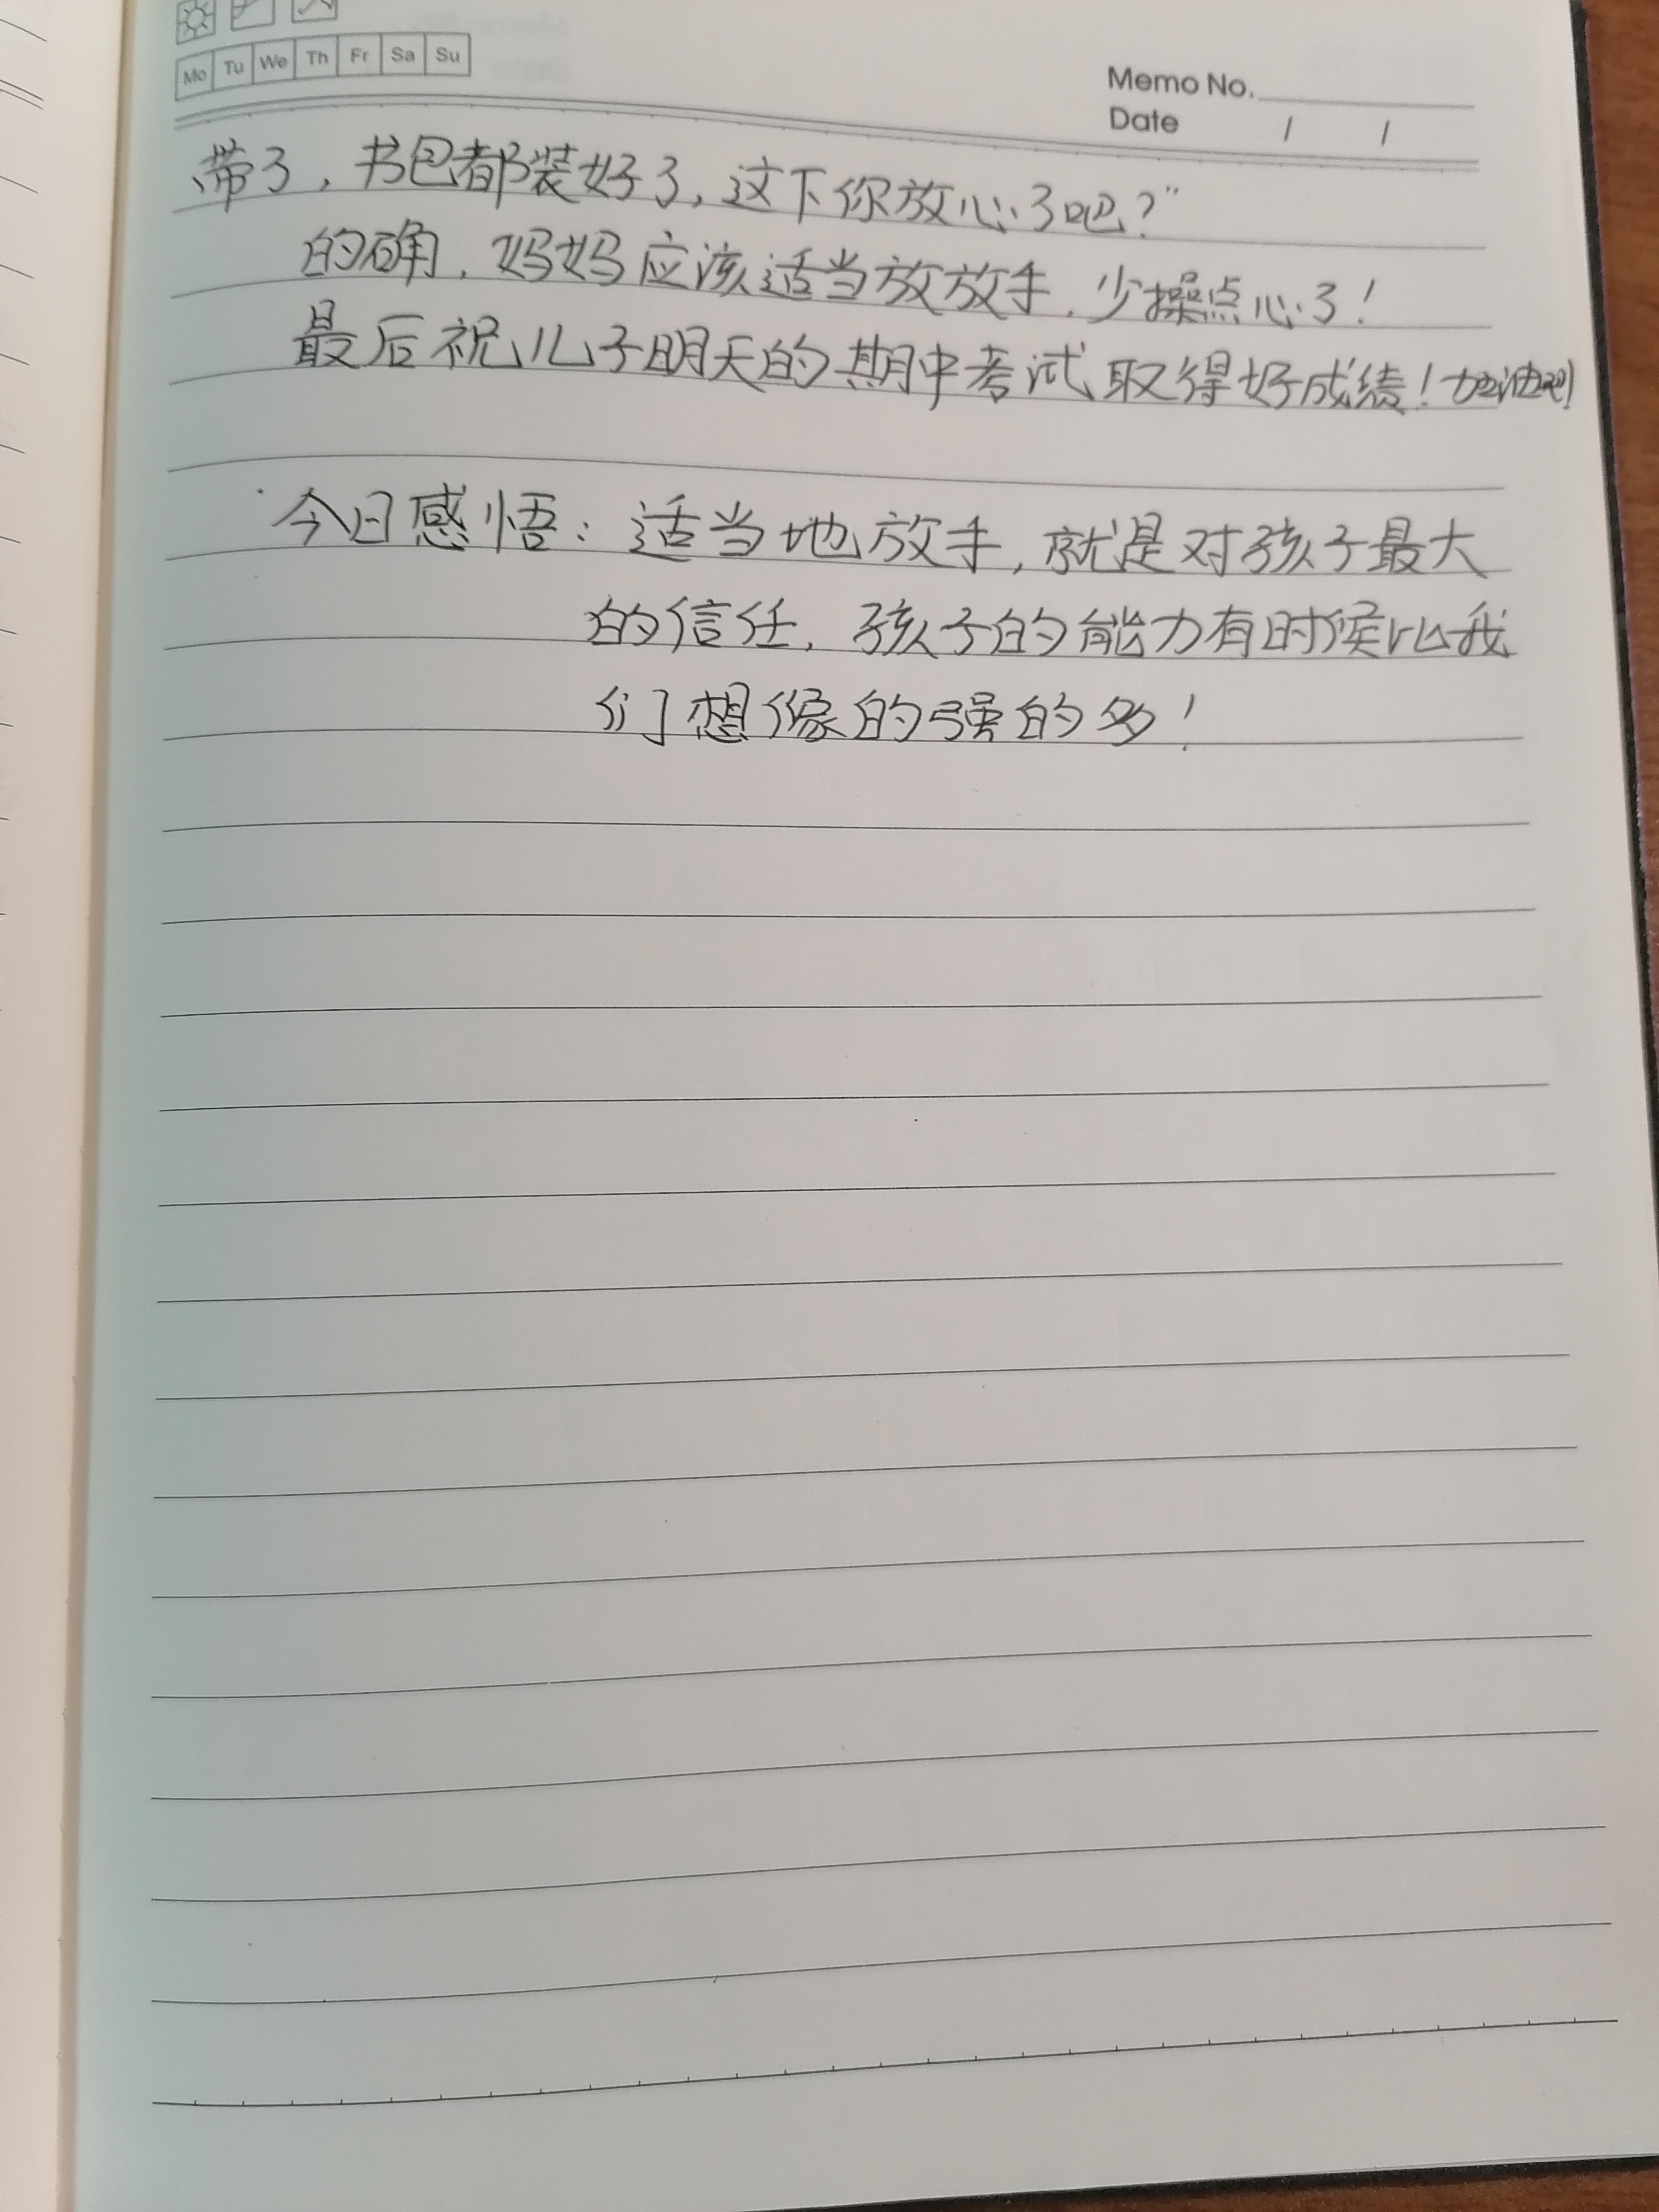 Mo Tu We Th Fr Sa Su
Memo No.
Date / /
带了，书包都装好了，这下你放心了吧？”
的确，妈妈应该适当放放手，少操点心了！
最后祝儿子明天的期中考试取得好成绩！加油吧！
今日感悟：适当地放手，就是对孩子最大
的信任，孩子的能力有时候比我
们想像的强的多！